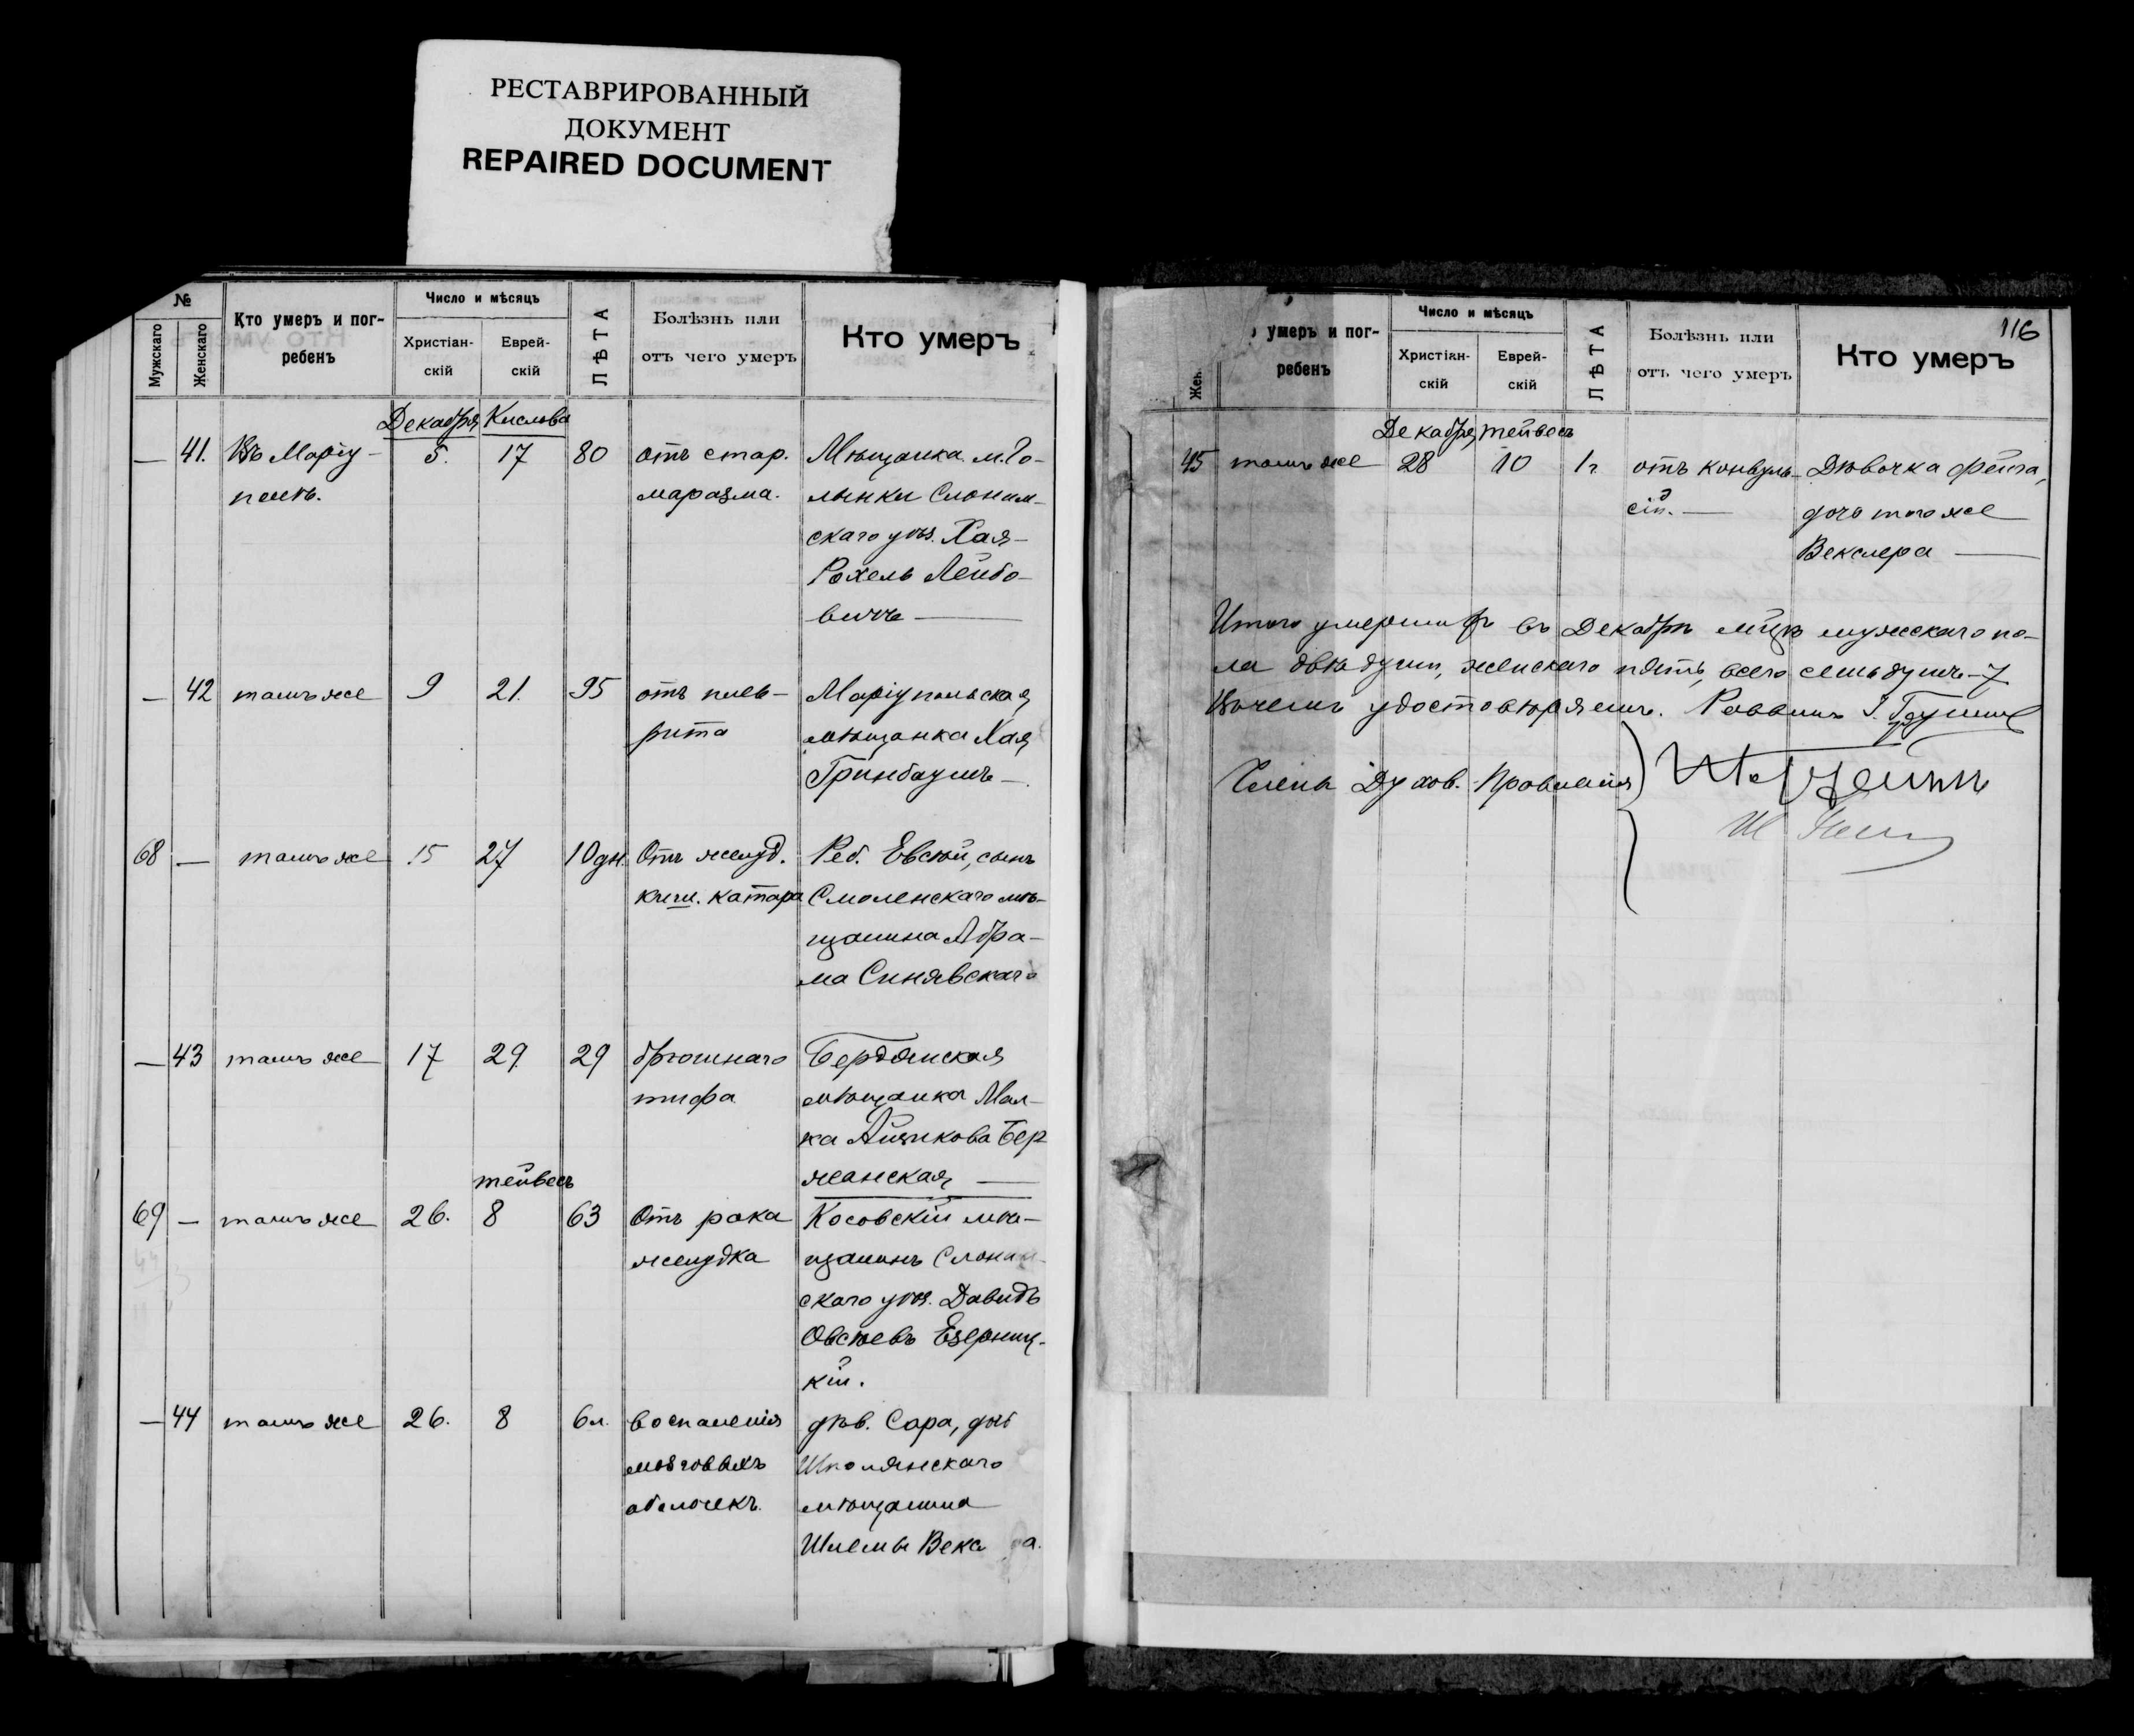 РЕСТАВРИРОВАННЫЙ
ДОКУМЕНТ
REPAIRED DOCUMENT
№
Мужскаго
Женскаго
Кто умеръ и пог-
ребенъ
Число и мѣсяцъ
Христіан-
скій
Еврей-
скій
ЛѢТА
Болѣзнь или
отъ чего умеръ
Кто умеръ
Декабря Кислова
— 41. Въ Маріу- 5. 17 80 отъ стар. Мѣщанка м. Го-
полѣ. маразма. лынки Слоним-
скаго уѣз. Хая-
Рохель Лейбо-
вичъ —
— 42 тамъ же 9 21. 95 отъ плев- Маріупольская
рита мѣщанка Хая
Гринбаумъ —
68 — тамъ же 15 27 10 дн. Отъ желуд. Реб. Евсѣй, сынъ
киш. катара Смоленскаго мѣ-
щанина Абра-
ма Синявскаго
— 43 тамъ же 17 29 29 брюшнаго Бердянская
тифа мѣщанка Мал-
ка Бер
жанская —
тейвесъ
69 — тамъ же 26. 8 63 Отъ рака Косовскій мѣ-
желудка щанинъ Слоним
скаго уѣз. Давидъ
Овсѣевъ Езерниц-
кій.
— 44 тамъ же 26. 8 6 л. воспаленія дѣв. Сара, дочь
мозговыхъ Шполянскаго
оболочекъ. мѣщанина
Шлемы Векс а.
116
Жен.
умеръ и пог-
ребенъ
Число и мѣсяцъ
Христіан-
скій
Еврей-
скій
ЛѢТА
Болѣзнь или
отъ чего умеръ
Кто умеръ
Декабря тейвесъ
45 тамъ же 28 10 1 г. отъ конвуль- Дѣвочка Фейга,
сій. — дочь того же
Векслера —
Итого умершихъ въ Декабрѣ м-цѣ мужскаго по-
ла двѣ души, женскаго пять, всего семь душъ – 7
Въ чемъ удостовѣряемъ. Раввинъ
Члены Духов. Правленія